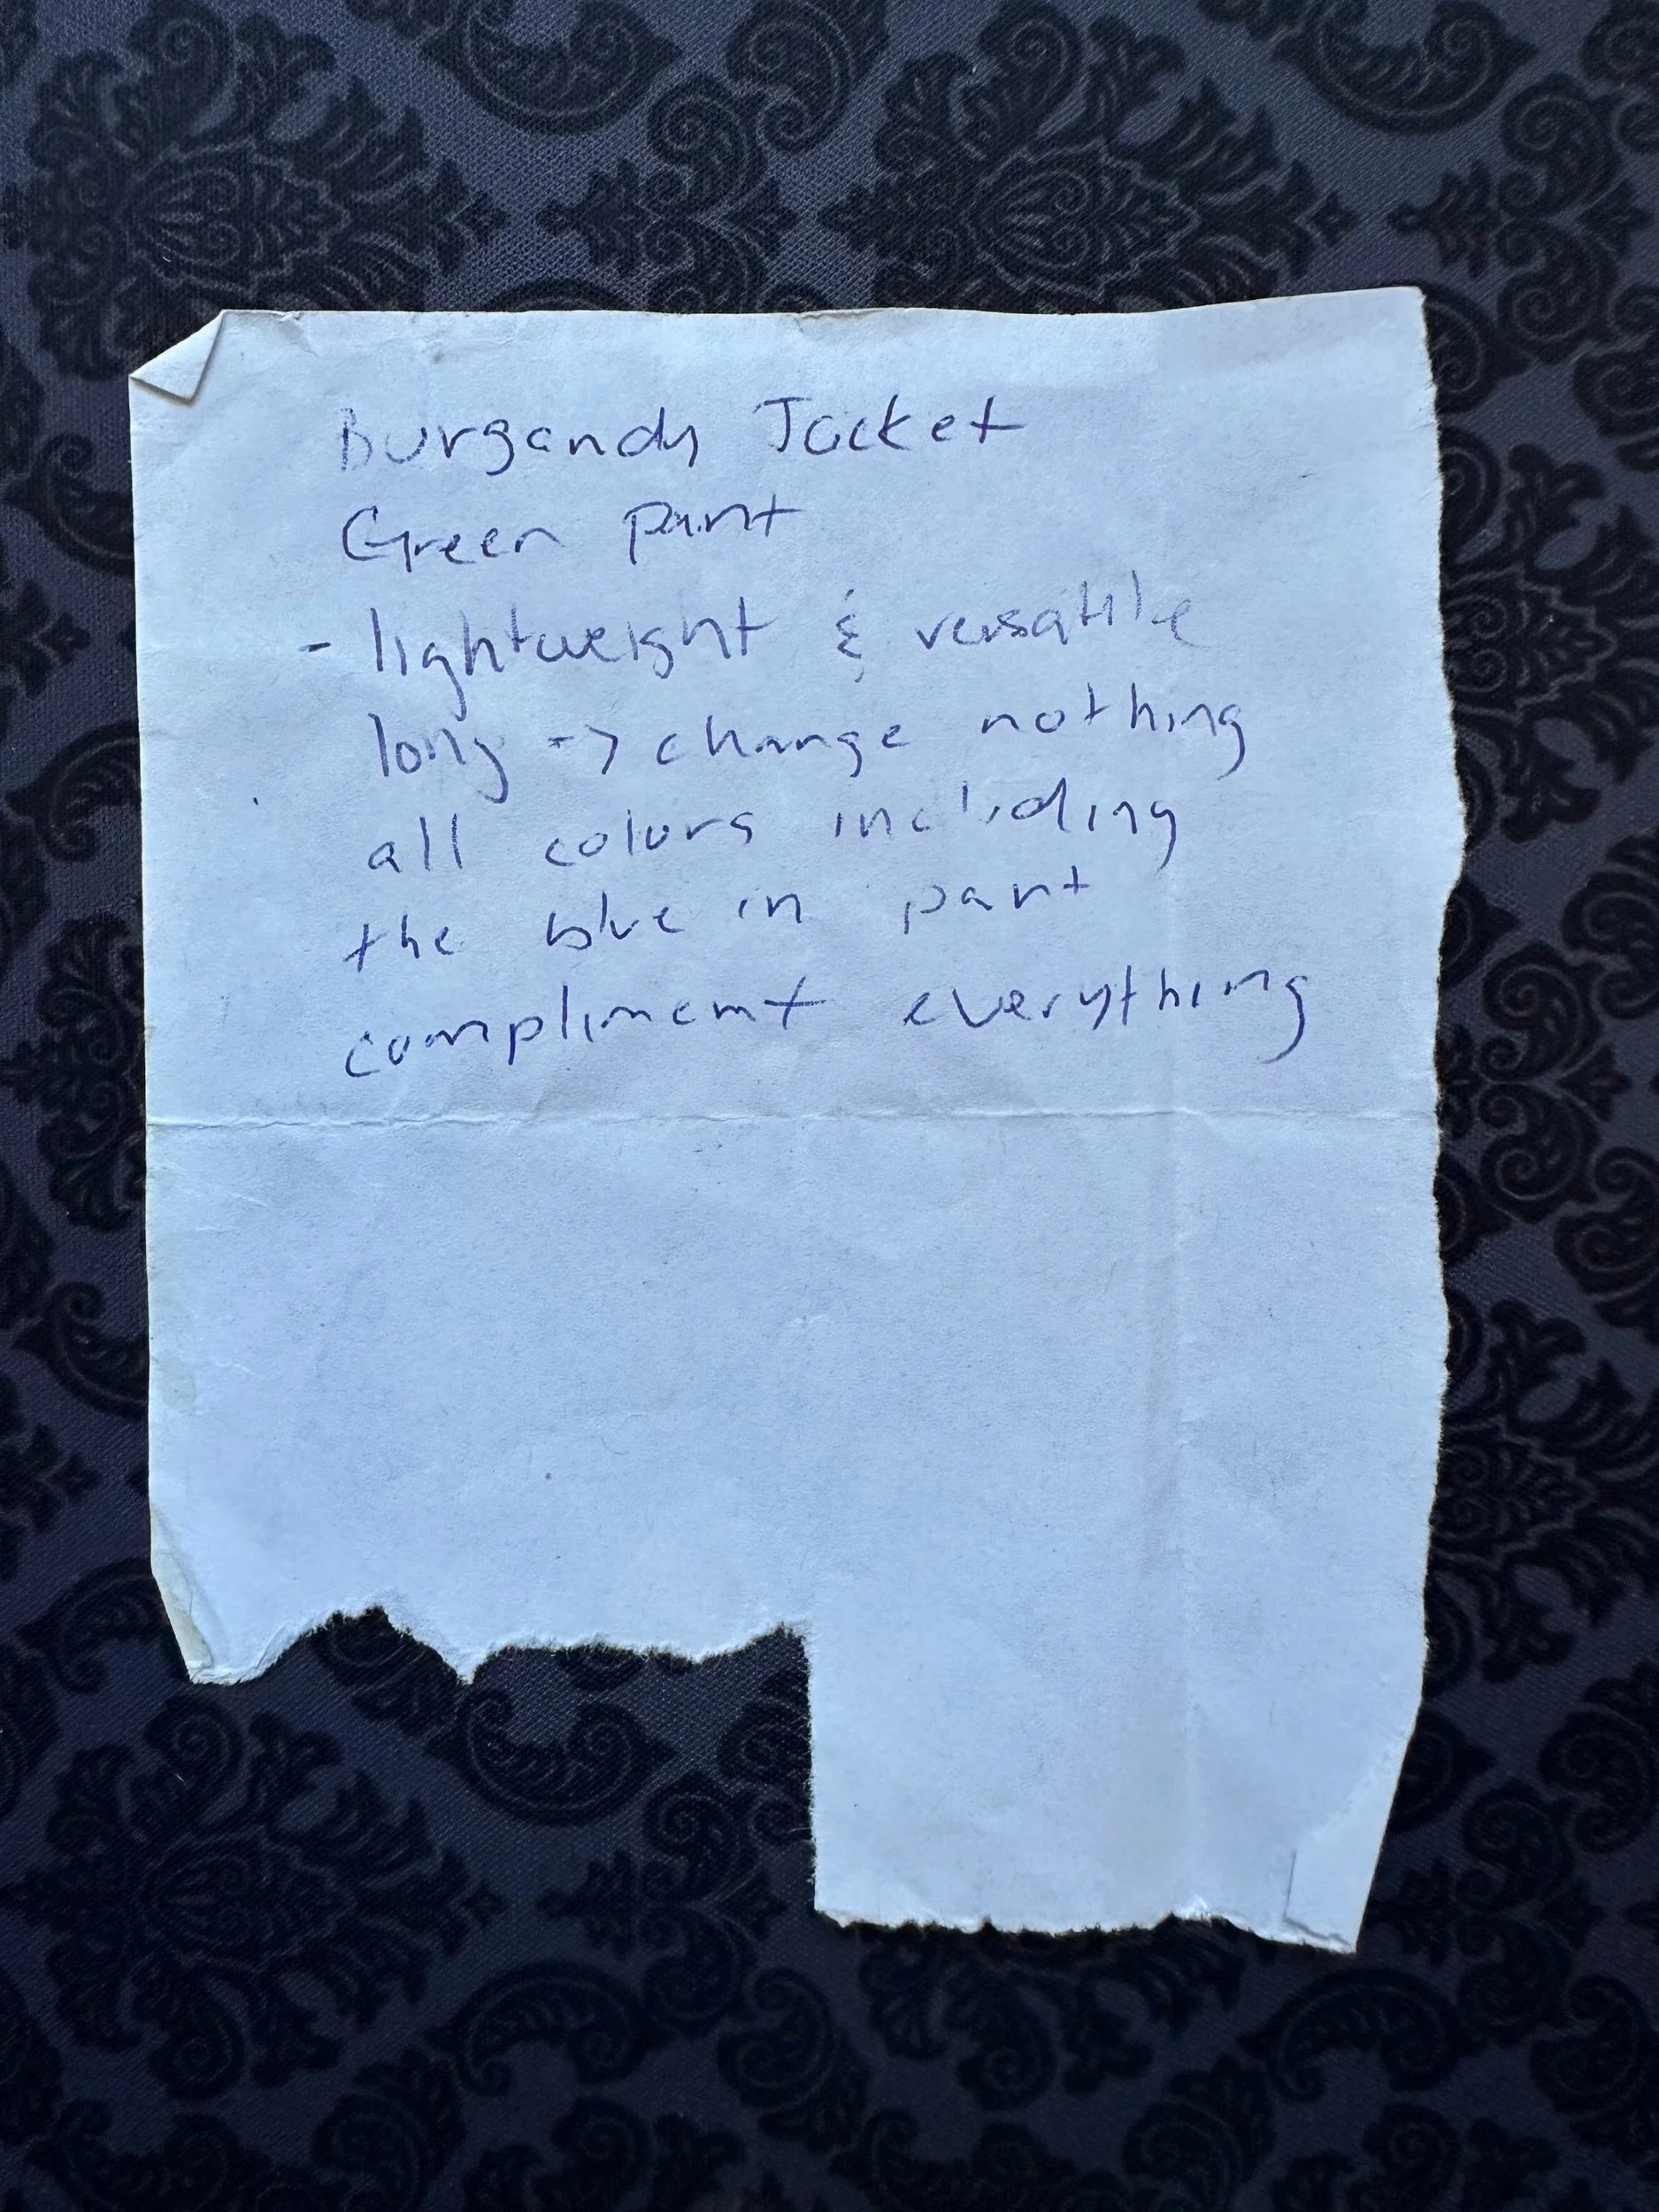 Burgandy Jacket
Green pant
- lightweight & versatile
long -> change nothing
all colors including
the blue in pant
compliment everything